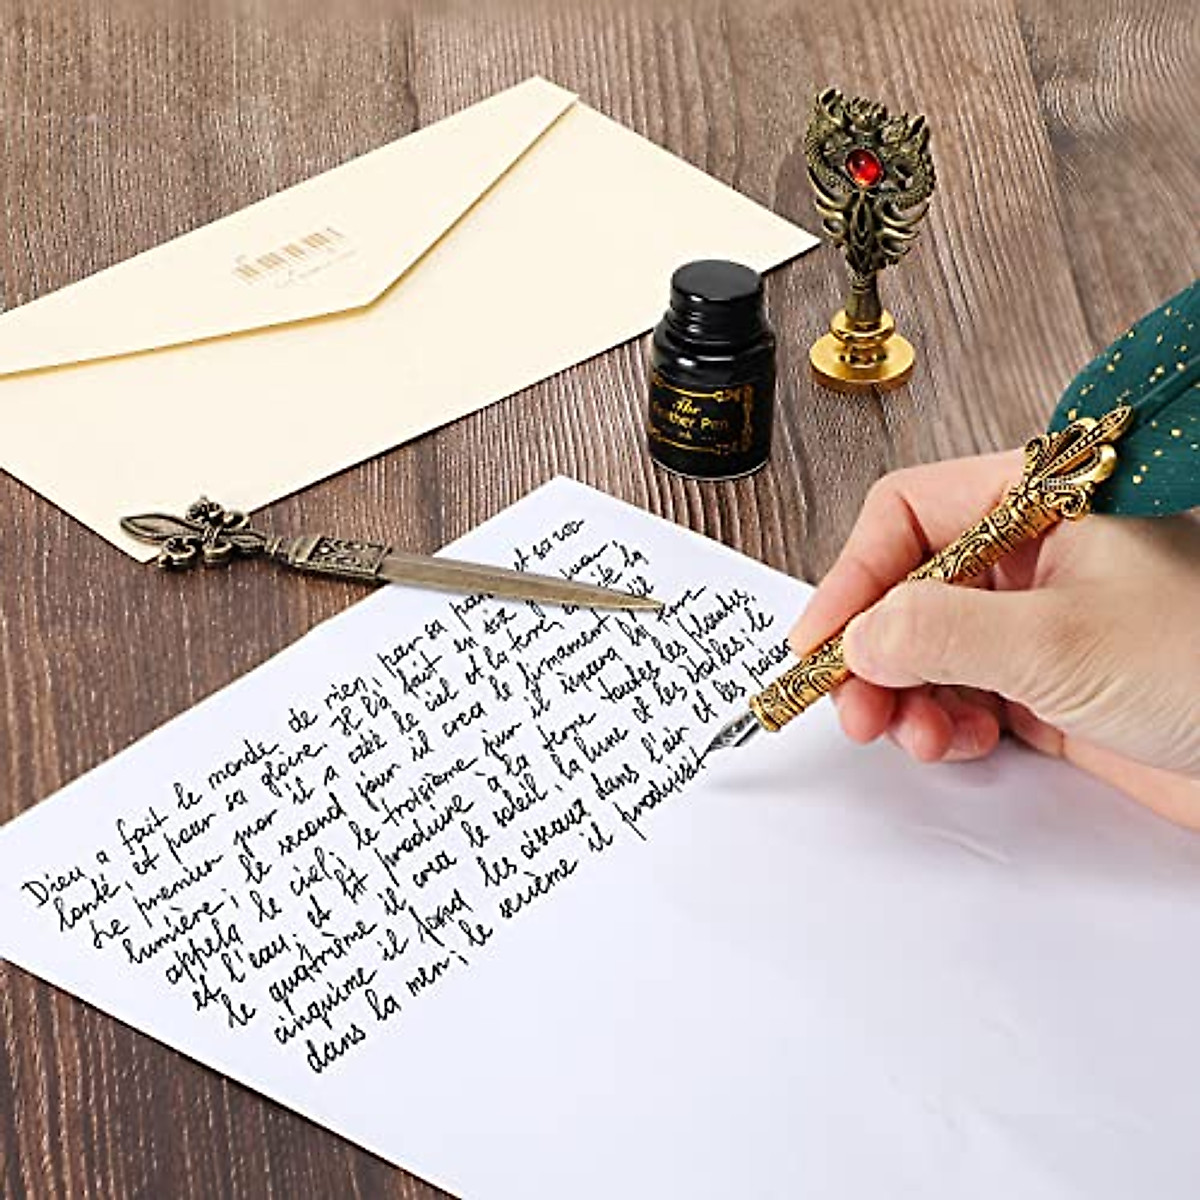 The
Feather Pen
ink
Dieu a fait le monde de rien, par sa et sa vo
lonté, et pour sa gloire. Il l'a fait en six
Le premier jour il a créé le ciel et la terre, la
lumière; le second jour il crea le firmament
appela le ciel; le troisième jour il sépara la terre
et l'eau, et fit produire à la terre toutes les plantes;
le quatrième il crea le soleil, la lune et les toiles; le
cinquime il les oiseaux dans l'air et les poisso
dans la mer; le sexième il produisit